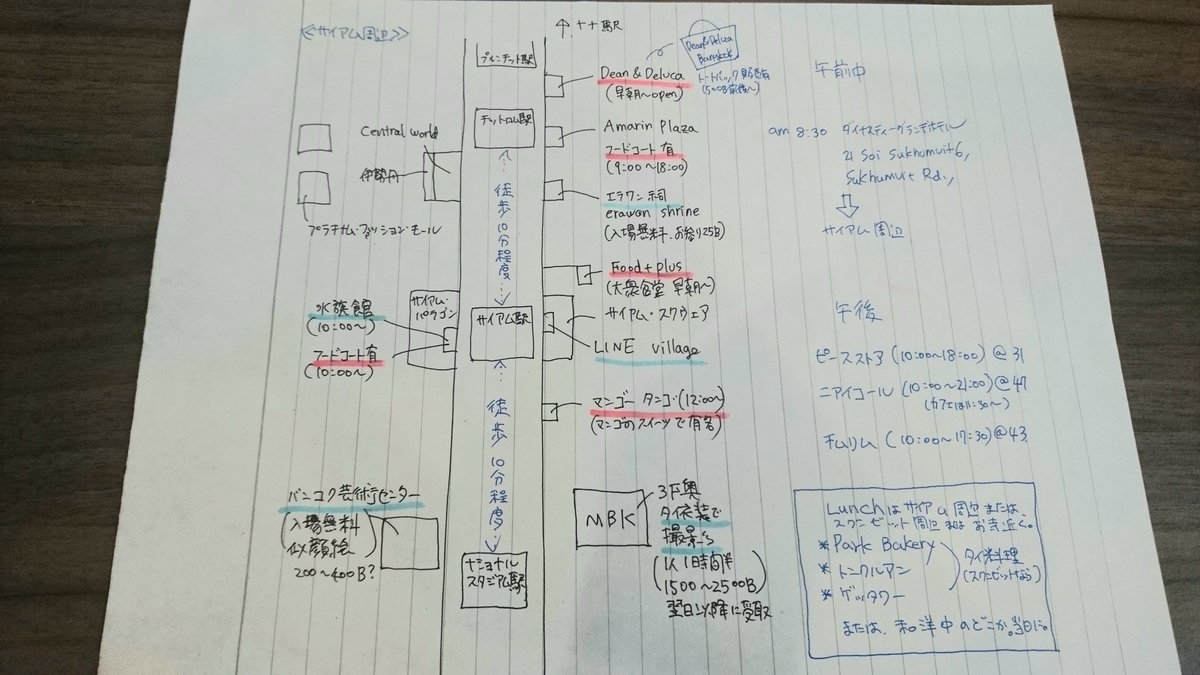 ≪サイアム周辺≫
↑ナナ駅
プルンチット駅
Dean & Deluca
(早朝〜open)
Dean&Deluca
Bangkok
トートバック販売有
(500B前後〜)
チットロム駅
Central world
伊勢丹
プラチナム・ファッション・モール
Amarin Plaza
フードコート有
(9:00〜18:00)
エラワン祠
erawan shrine
(入場無料、お参り25B)
徒歩10分程度
Food + plus
(大衆食堂 早朝〜)
サイアム・
パラゴン
水族館
(10:00〜)
フードコート有
(10:00〜)
サイアム駅
サイアム・スクウェア
LINE village
マンゴー タンゴ・(12:00〜)
(マンゴのスイーツで有名)
徒歩10分程度
バンコク芸術センター
(入場無料
似顔絵)
200〜400B?
ナショナル
スタジアム駅
MBK
3F奥
タイ衣装で
撮影
(1人1時間半
1500〜2500B)
翌日以降に受取
午前中
am 8:30 ダイナスティーグランデホテル
21 Soi Sukhumvit 6,
Sukhumvit Rd.,
⇩
サイアム周辺
午後
ピースストア (10:00〜18:00) @ 31
ニアイコール (10:00〜21:00) @ 47
チムリム (10:00〜17:30) @ 43
Lunchはサイアム周辺または、
スクンビット周辺 お寺近く。
* Park Bakery
* トンクルアン
* ゲッタワー
タイ料理
(スクンビットなら)
または、和洋中のどこか。当日に。